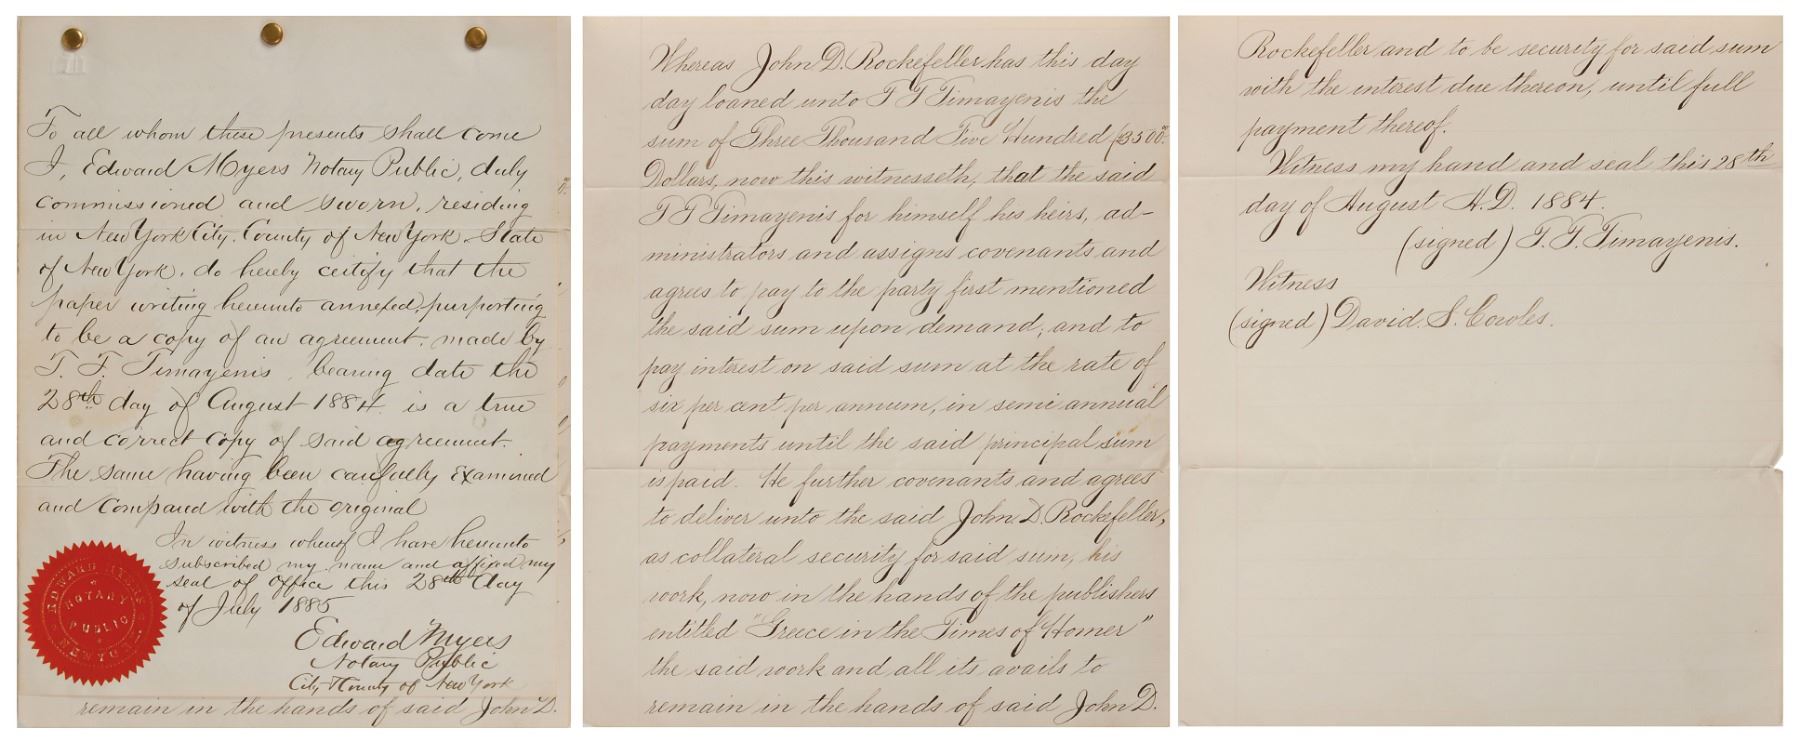 To all whom these presents shall come
I, Edward Myers Notary Public, duly
commissioned and sworn, residing
in New York City, County of New York, State
of New York, do hereby certify that the
paper writing hereunto annexed, purporting
to be a copy of an agreement, made by
T. T. Timayenis, bearing date the
28th day of August 1884. is a true
and correct copy of said agreement.
The same having been carefully examined
and compared with the original
In witness whereof I have hereunto
subscribed my name and affixed my
seal of office this 28th day
of July 1885
EDWARD MYERS
NOTARY
PUBLIC
Edward Myers
Notary Public
City & County of New York
remain in the hands of said John D.
Whereas John D. Rockefeller has this day
day loaned unto T T Timayenis the
sum of Three Thousand Five Hundred (3500
Dollars, now this witnesseth, that the said
T T Timayenis for himself his heirs, ad-
ministrators and assigns covenants and
agrees to pay to the party first mentioned
the said sum upon demand; and to
pay interest on said sum at the rate of
six per cent per annum, in semi annual
payments until the said principal sum
is paid. He further covenants and agrees
to deliver unto the said John D. Rockefeller,
as collateral security for said sum, his
work, now in the hands of the publishers
entitled "Greece in the Times of Homer"
the said work and all its avails to
remain in the hands of said John D.
Rockefeller and to be security for said sum
with the interest due thereon, until full
payment thereof.
Witness my hand and seal this 28th
day of August A.D. 1884.
(signed) T. T. Timayenis.
Witness
(signed) David. S. Cowles.